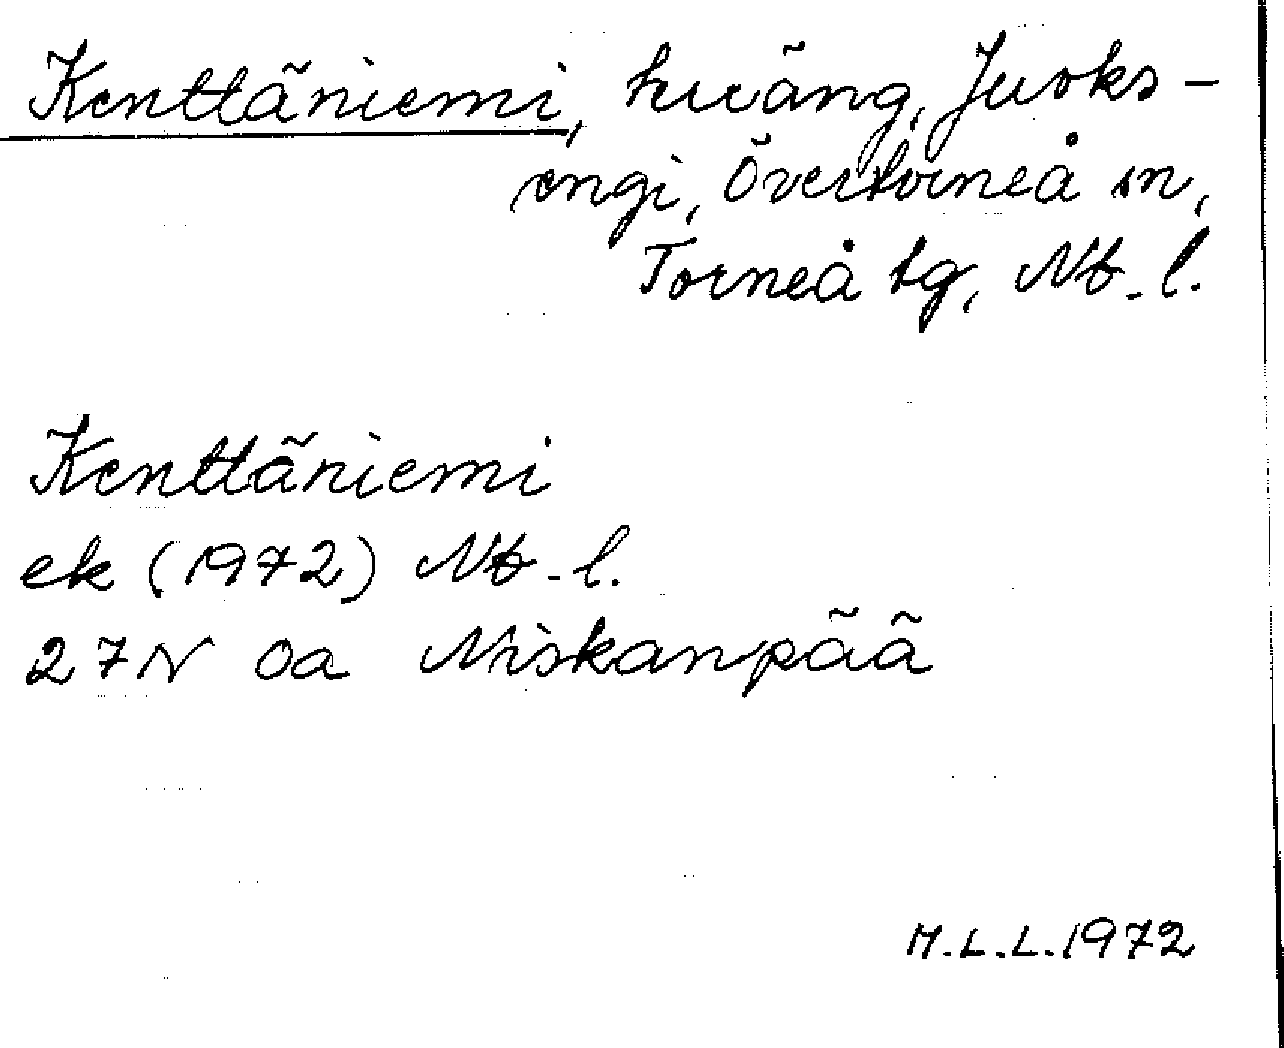 Kenttäniemi, hväng, Juoks-
engi, Övertorneå sn,
Torneå tg, Nb. l.
Kenttäniemi
ek (1972) Nb. l.
27N 0a Niskanpää
M.L.L.1972